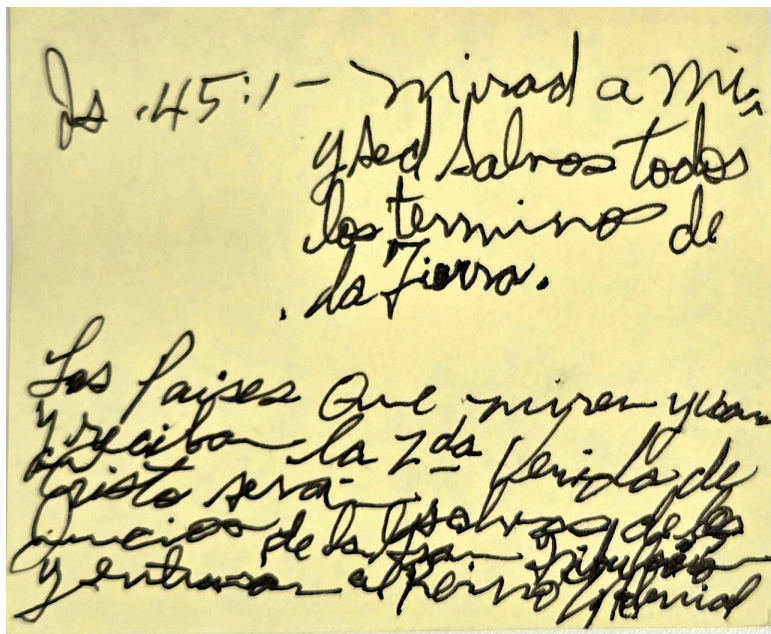 Is. 45:1 - mirad a mi,
y sed salvos todos
los terminos de
la Tierra.
Los Paises Que miren y vean
y reciban la 2da Venida de
Cristo seran salvos de los
Juicios de la Gran Tribulación
y entraran al Reino Milenial